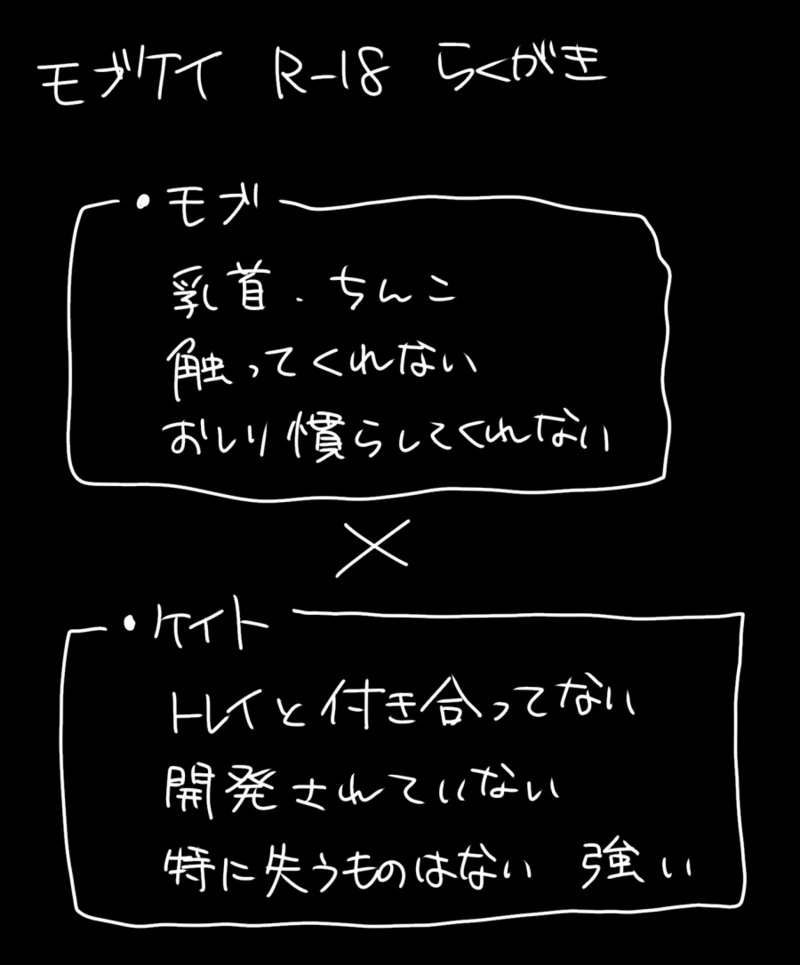 モブケイ R-18 らくがき
・モブ
乳首・ちんこ
触ってくれない
おしり慣らしてくれない
×
・ケイト
トレイと付き合ってない
開発されていない
特に失うものはない 強い